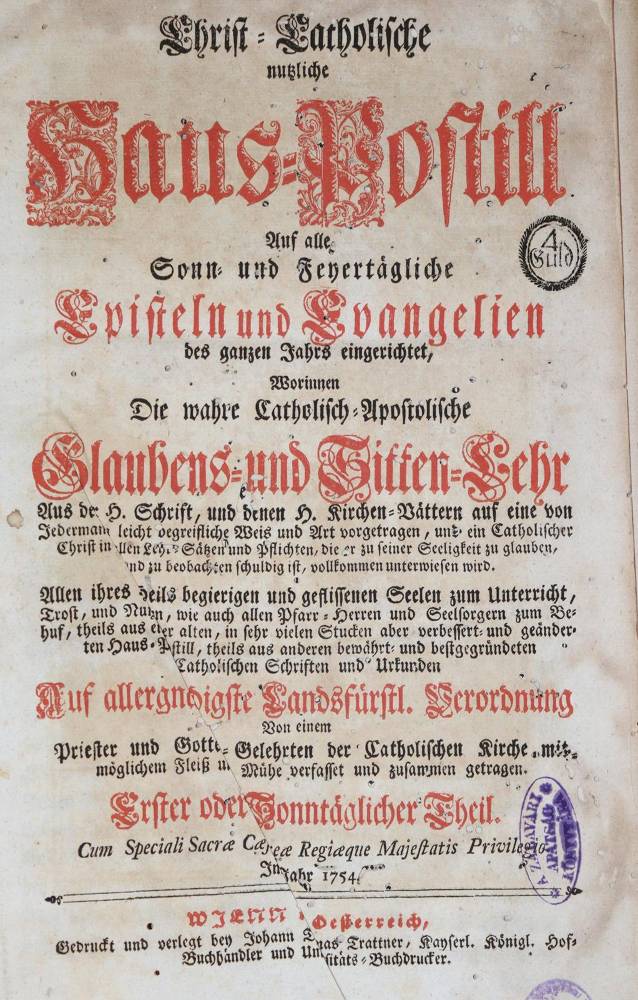 Christ-Catholische
nutzliche
Haus-Postill
Auf alle
Sonn- und Feyertägliche
Episteln und Evangelien
des ganzen Jahrs eingerichtet,
Worinnen
Die wahre Catholisch-Apostolische
Glaubens- und Sitten-Lehr
Aus der H. Schrift, und denen H. Kirchen-Vättern auf eine von
Jedermann leicht begreifliche Weis und Art vorgetragen, und ein Catholischer
Christ in allen Lehr-Sätzen und Pflichten, die er zu seiner Seeligkeit zu glauben,
und zu beobachten schuldig ist, vollkommen unterwiesen wird.
Allen ihres Heils begierigen und geflissenen Seelen zum Unterricht,
Trost, und Nutzen, wie auch allen Pfarr-Herren und Seelsorgern zum Be-
huf, theils aus einer alten, in sehr vielen Stucken aber verbessert- und geänder-
ten Haus-Postill, theils aus anderen bewährt- und bestgegründeten
Catholischen Schriften und Urkunden
Auf allergnädigste Landsfürstl. Verordnung
Von einem
Priester und Gotts-Gelehrten der Catholischen Kirche mit
möglichem Fleiß und Mühe verfasset und zusammen getragen.
Erster oder Sonntäglicher Theil.
Cum Speciali Sacræ Cæsareæ Regiæque Majestatis Privilegio
Im Jahr 1754.
WIENN in Oesterreich,
Gedruckt und verlegt bey Johann Thomas Trattner, Kayserl. Königl. Hof-
Buchhändler und Universitäts-Buchdrucker.
4
Guld
A ZALAVÁRI
APÁTSÁG
KÖNYVTÁRA